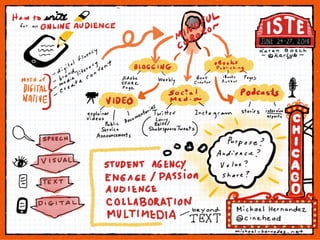 How to write
for an ONLINE AUDIENCE
ISTE
JUNE 24-27, 2018
Karen Bosch
@karlyb
MYTH OF
DIGITAL
NATIVE
digital fluency
media literacy
create content
BLOGGING
Adobe
Spark
Page
Weebly
eBooks
Publishing
Book
Creator
iBooks
Author
Pages
VIDEO
explainer
videos
Public
Service
Announcements
Documentaries
Social
Media
Twitter
Larry
Ferlazzo
Shakespeare Tweets
Instagram
Podcasts
stories
interview
experts
SPEECH
VISUAL
TEXT
DIGITAL
STUDENT AGENCY
ENGAGE / PASSION
AUDIENCE
COLLABORATION
MULTIMEDIA
beyond
TEXT
Purpose?
Audience?
Value?
Share?
CHICAGO
Michael Hernandez
@cinehead
michael-hernandez.net